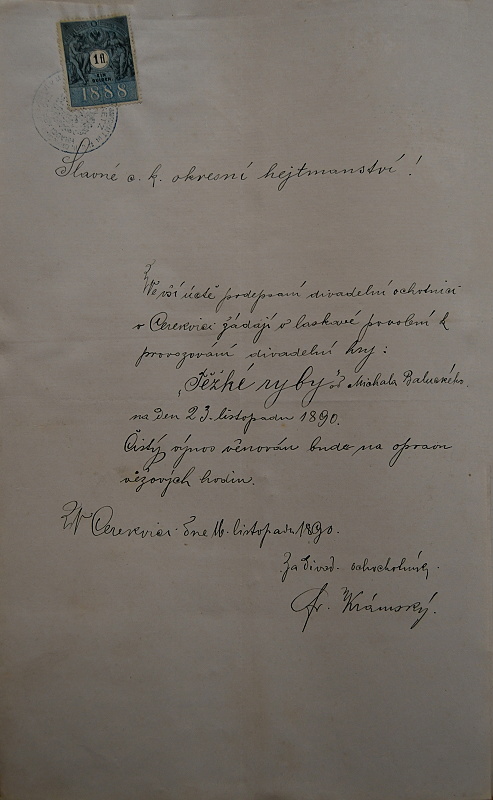 1 fl
EIN GULDEN
1888
Slavné c. k. okresní hejtmanství!
Ve vší úctě podepsaní divadelní ochotníci
v Cerekvici žádají o laskavé povolení k
provozování divadelní hry:
„Těžké ryby" od Michala Baluckého.
na den 23. listopadu 1890.
Čistý výnos věnován bude na opravu
věžových hodin.
V Cerekvici dne 16. listopadu 1890.
Za divad. ochotníky
Fr. Krámský.